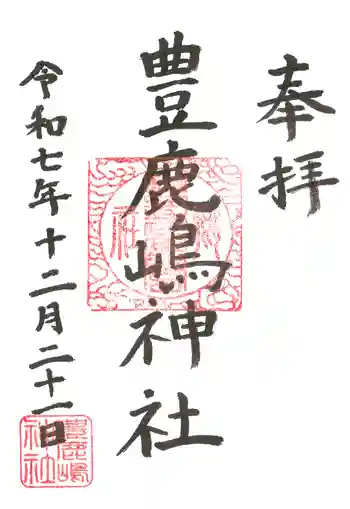 奉拝
豊鹿嶋神社
令和七年十二月二十一日
豊鹿嶋
神社